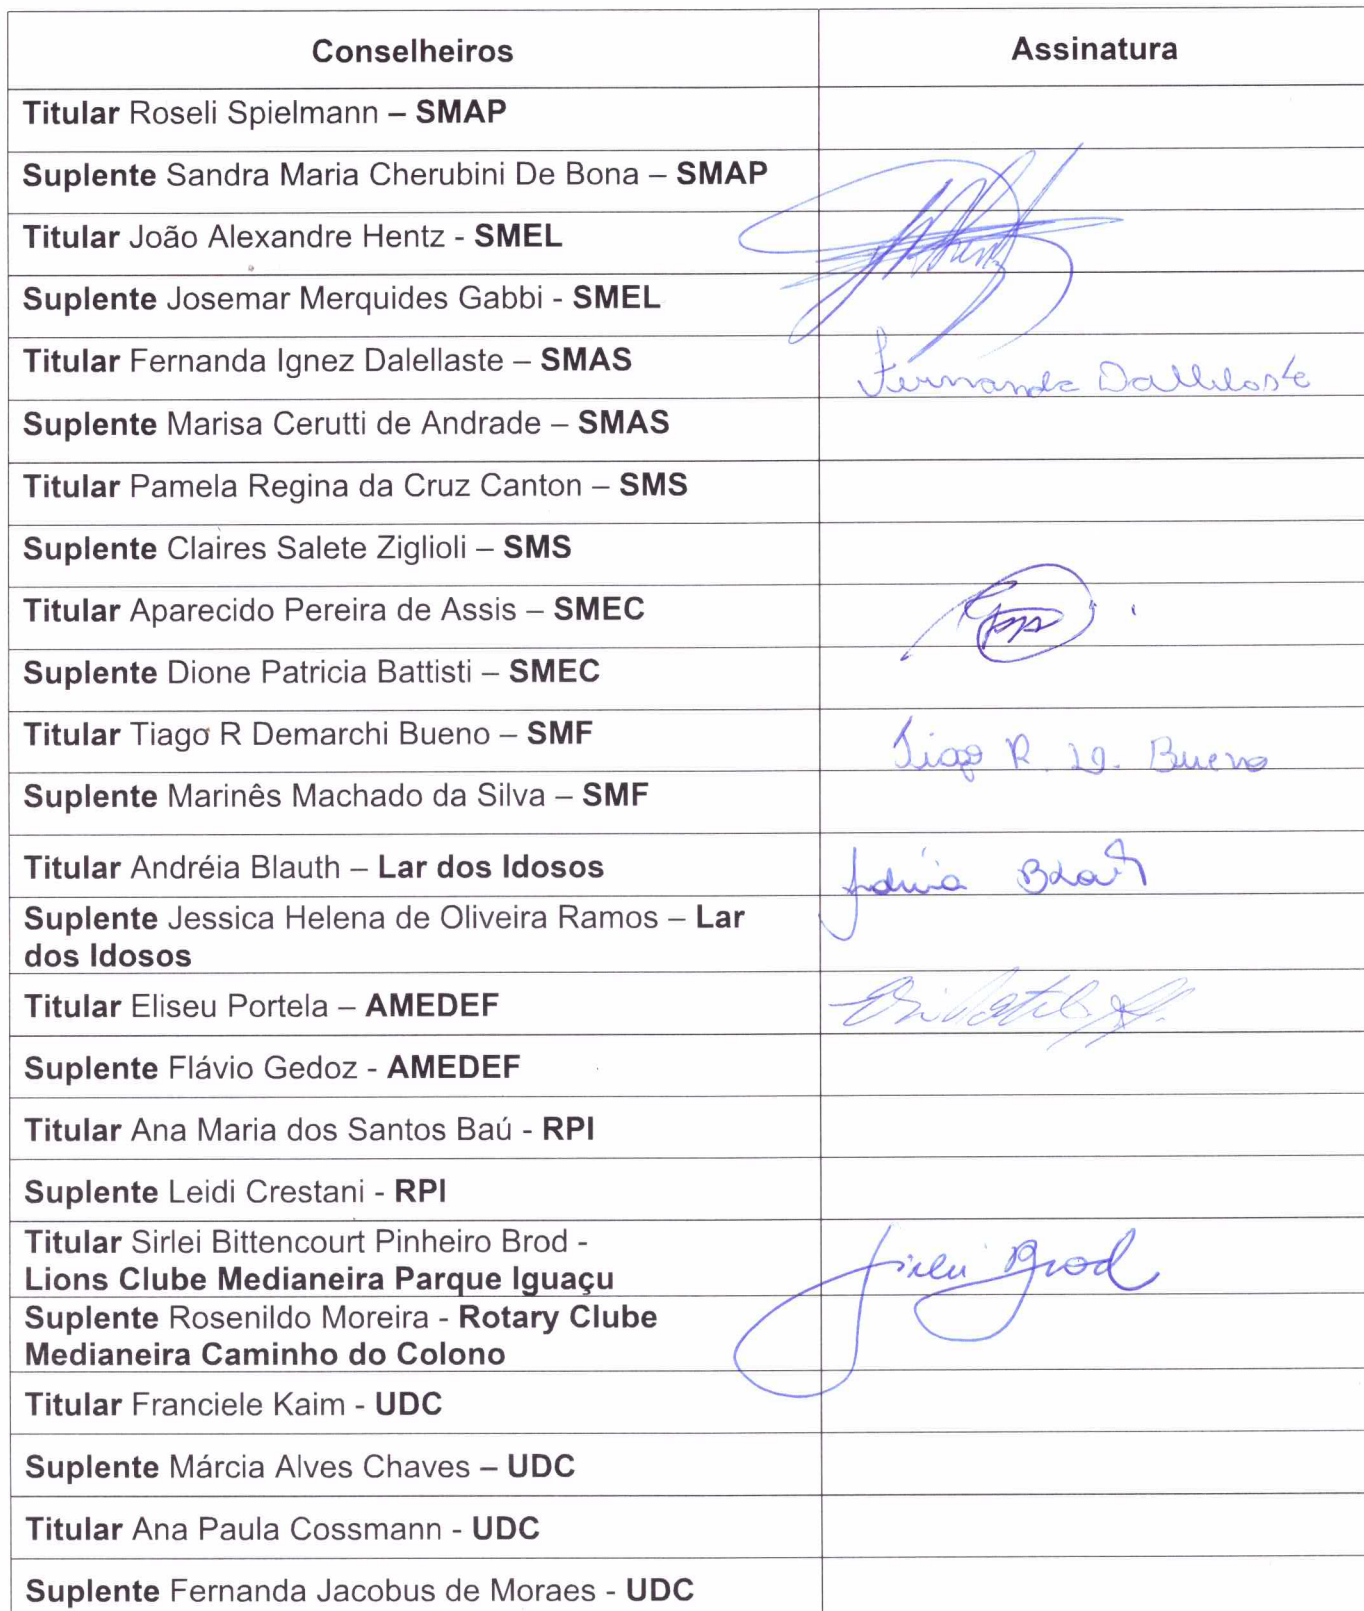 Conselheiros Assinatura
Titular Roseli Spielmann – SMAP
Suplente Sandra Maria Cherubini De Bona – SMAP
Titular João Alexandre Hentz - SMEL
Suplente Josemar Merquides Gabbi - SMEL
Titular Fernanda Ignez Dalellaste – SMAS Fernanda Dallelaste
Suplente Marisa Cerutti de Andrade – SMAS
Titular Pamela Regina da Cruz Canton – SMS
Suplente Claires Salete Ziglioli – SMS
Titular Aparecido Pereira de Assis – SMEC
Suplente Dione Patricia Battisti – SMEC
Titular Tiago R Demarchi Bueno – SMF Tiago R. D. Bueno
Suplente Marinês Machado da Silva – SMF
Titular Andréia Blauth – Lar dos Idosos
Suplente Jessica Helena de Oliveira Ramos – Lar
dos Idosos
Titular Eliseu Portela – AMEDEF
Suplente Flávio Gedoz - AMEDEF
Titular Ana Maria dos Santos Baú - RPI
Suplente Leidi Crestani - RPI
Titular Sirlei Bittencourt Pinheiro Brod -
Lions Clube Medianeira Parque Iguaçu Sirlei Brod
Suplente Rosenildo Moreira - Rotary Clube
Medianeira Caminho do Colono
Titular Franciele Kaim - UDC
Suplente Márcia Alves Chaves – UDC
Titular Ana Paula Cossmann - UDC
Suplente Fernanda Jacobus de Moraes - UDC